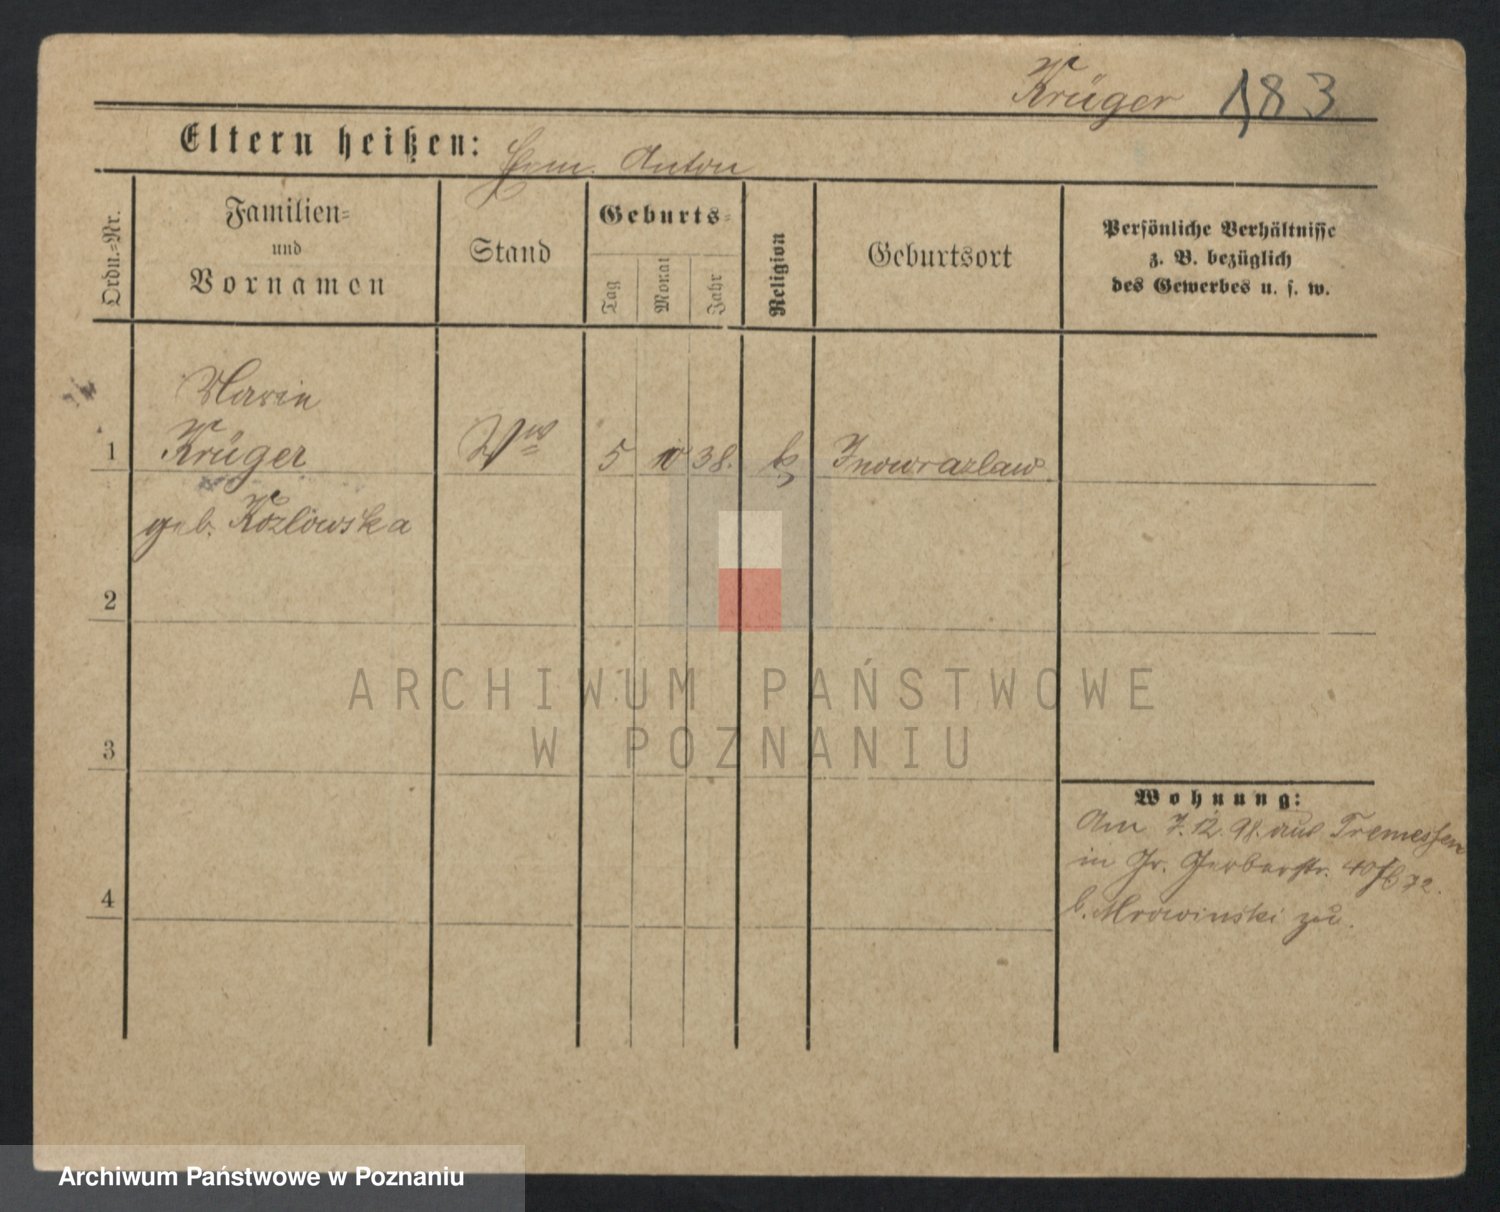 Krüger 183
Eltern heißen: Anton
Ordn.-Nr.
Familien-
und
Vornamen
Stand
Geburts-
Tag
Monat
Jahr
Religion
Geburtsort
Persönliche Verhältnisse
z. B. bezüglich
des Gewerbes u. s. w.
Marie
1 Krüger Ww 5 10 38. k Inowrazlaw
geb. Kozlowska
2
3
4
Wohnung:
Am 7.12.98. aus Tremessen
in Gr. Gerberstr. 40
b. Mrowinski zu.
ARCHIWUM PAŃSTWOWE
W POZNANIU
Archiwum Państwowe w Poznaniu